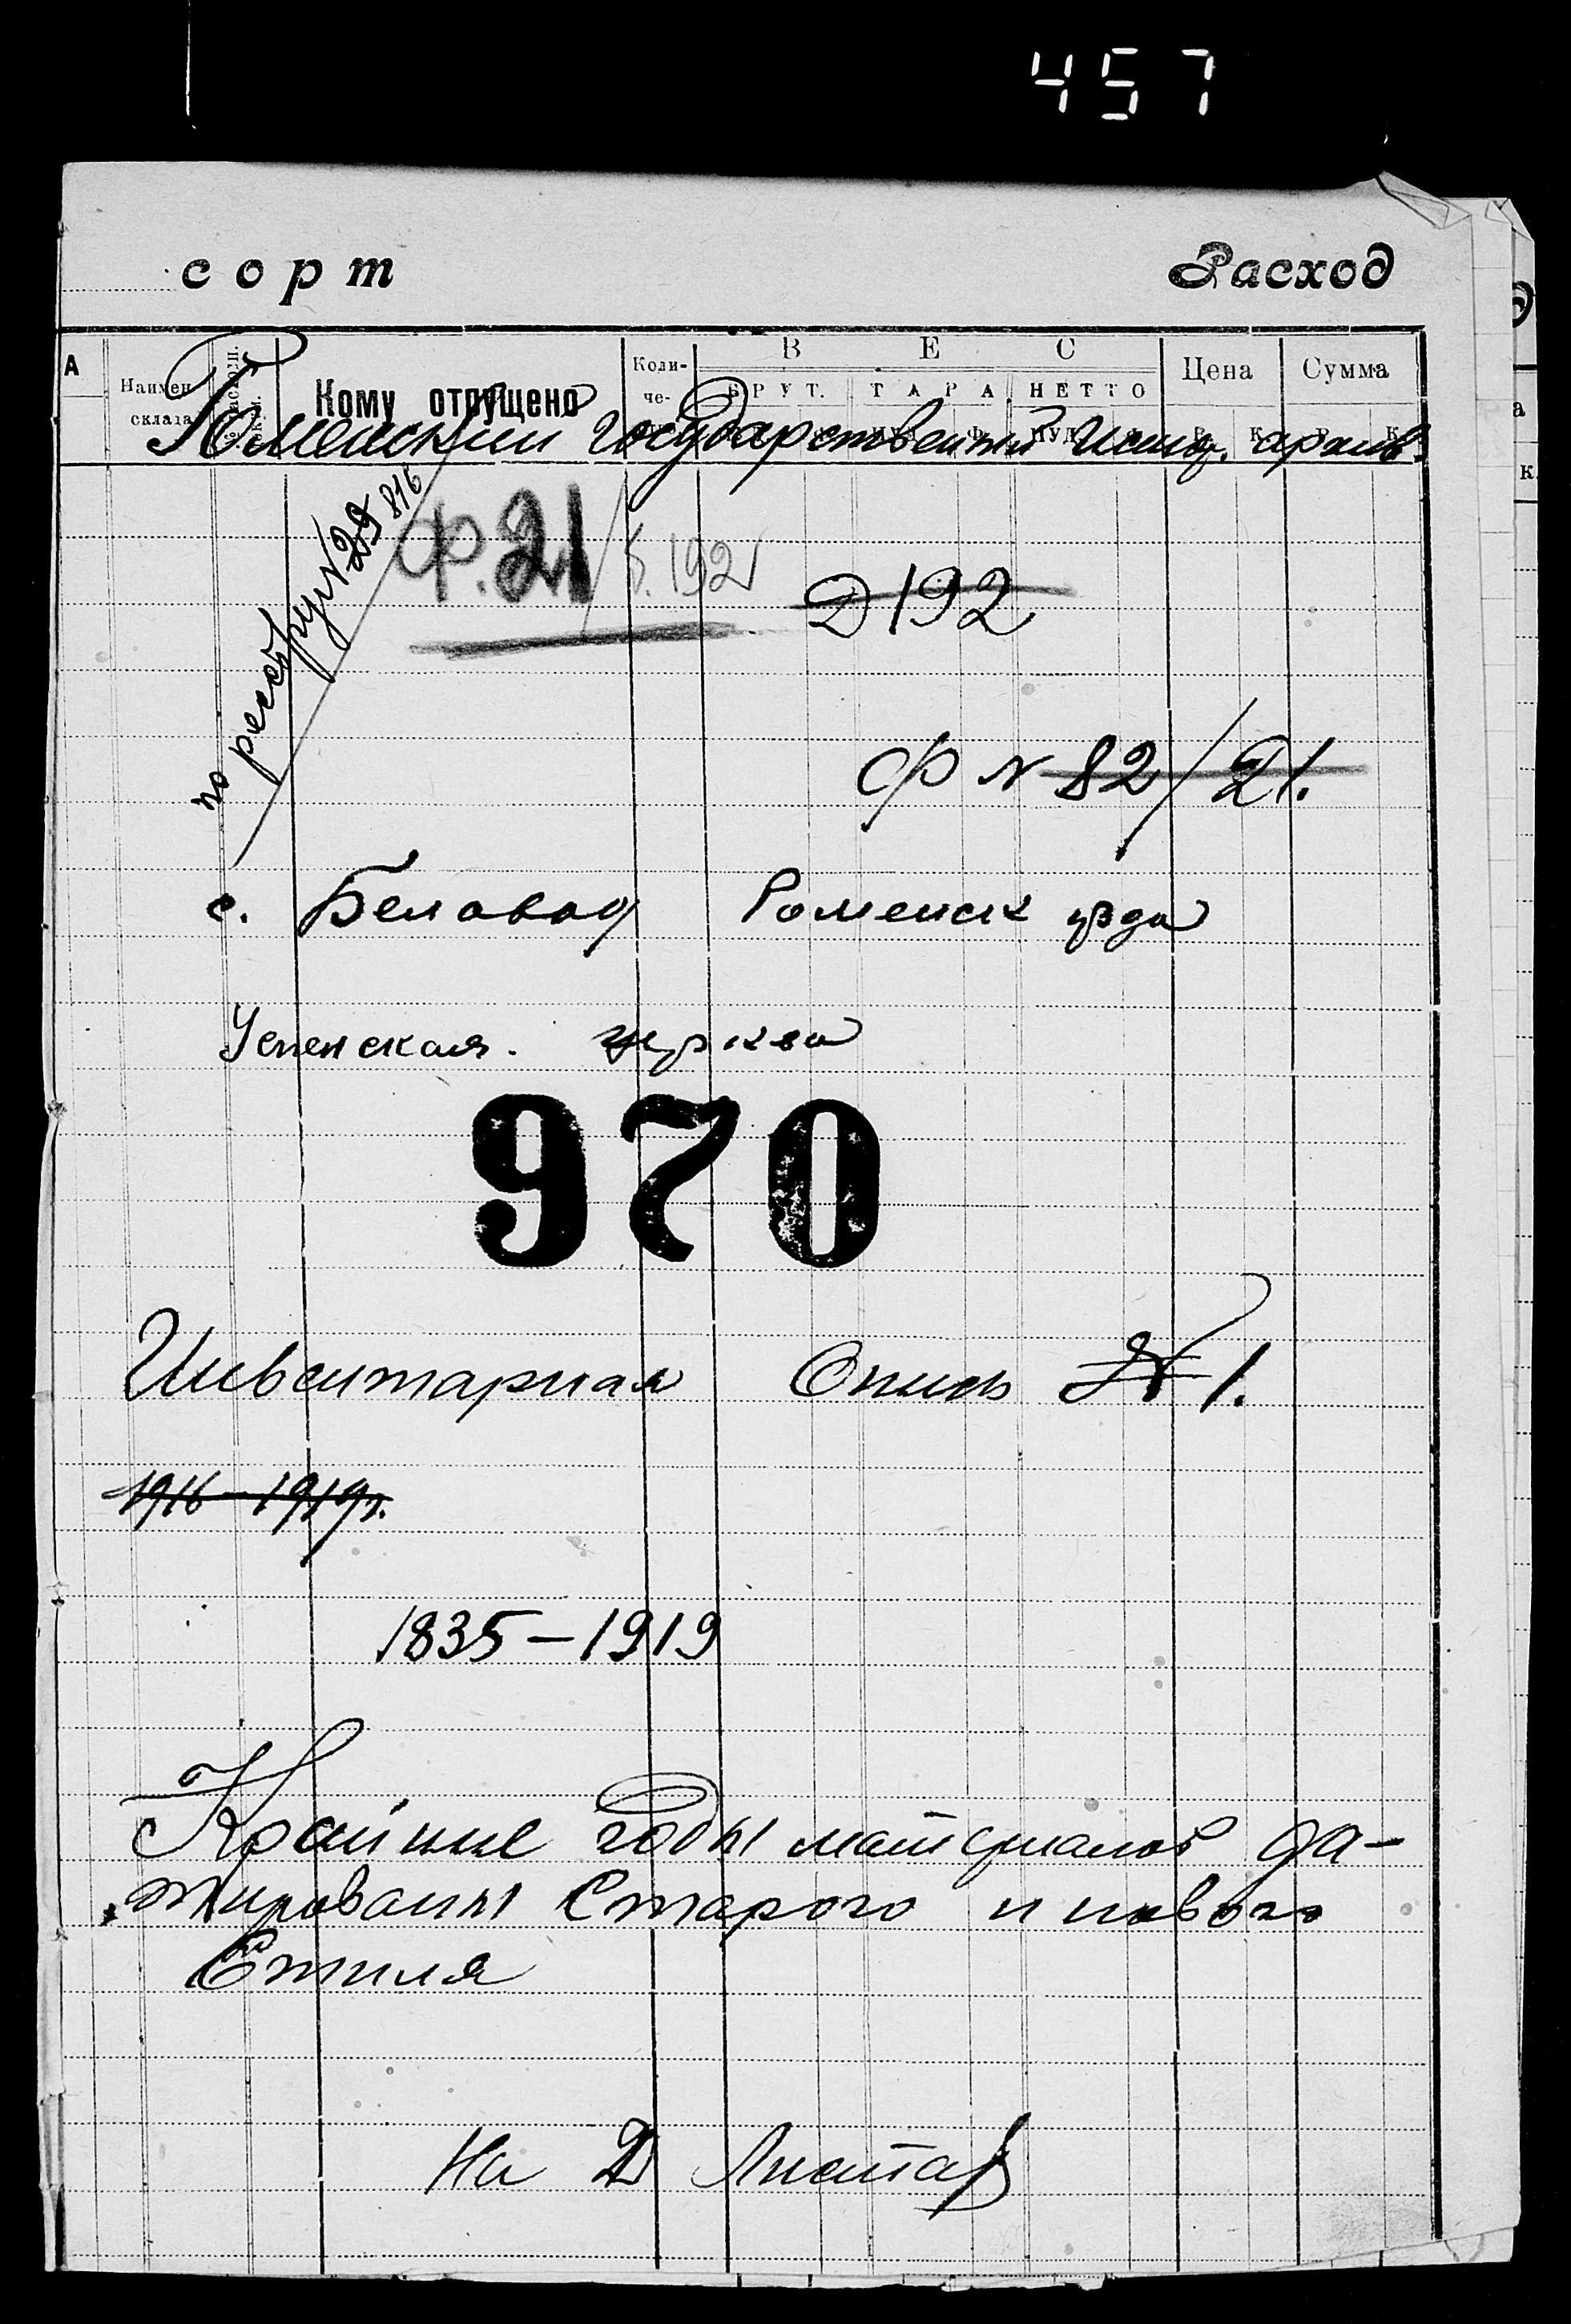 457
сорт Расход
А Наимен. склада Кому отпущено Коли-че- ВЕС БРУТ. ТАРА НЕТТО Цена Сумма
Роменский государственный истор. архив.
по реестру № 29 816
Ф. 21 192
Д 192
Ф № 82/21.
с. Беловод Роменск уезда
Успенская церква
970
Инвентарная Опись № 1.
1916–1919г.
1835–1919
Крайние годы материалов да-
тированы Старого и нового
Стиля
На 2 Листах